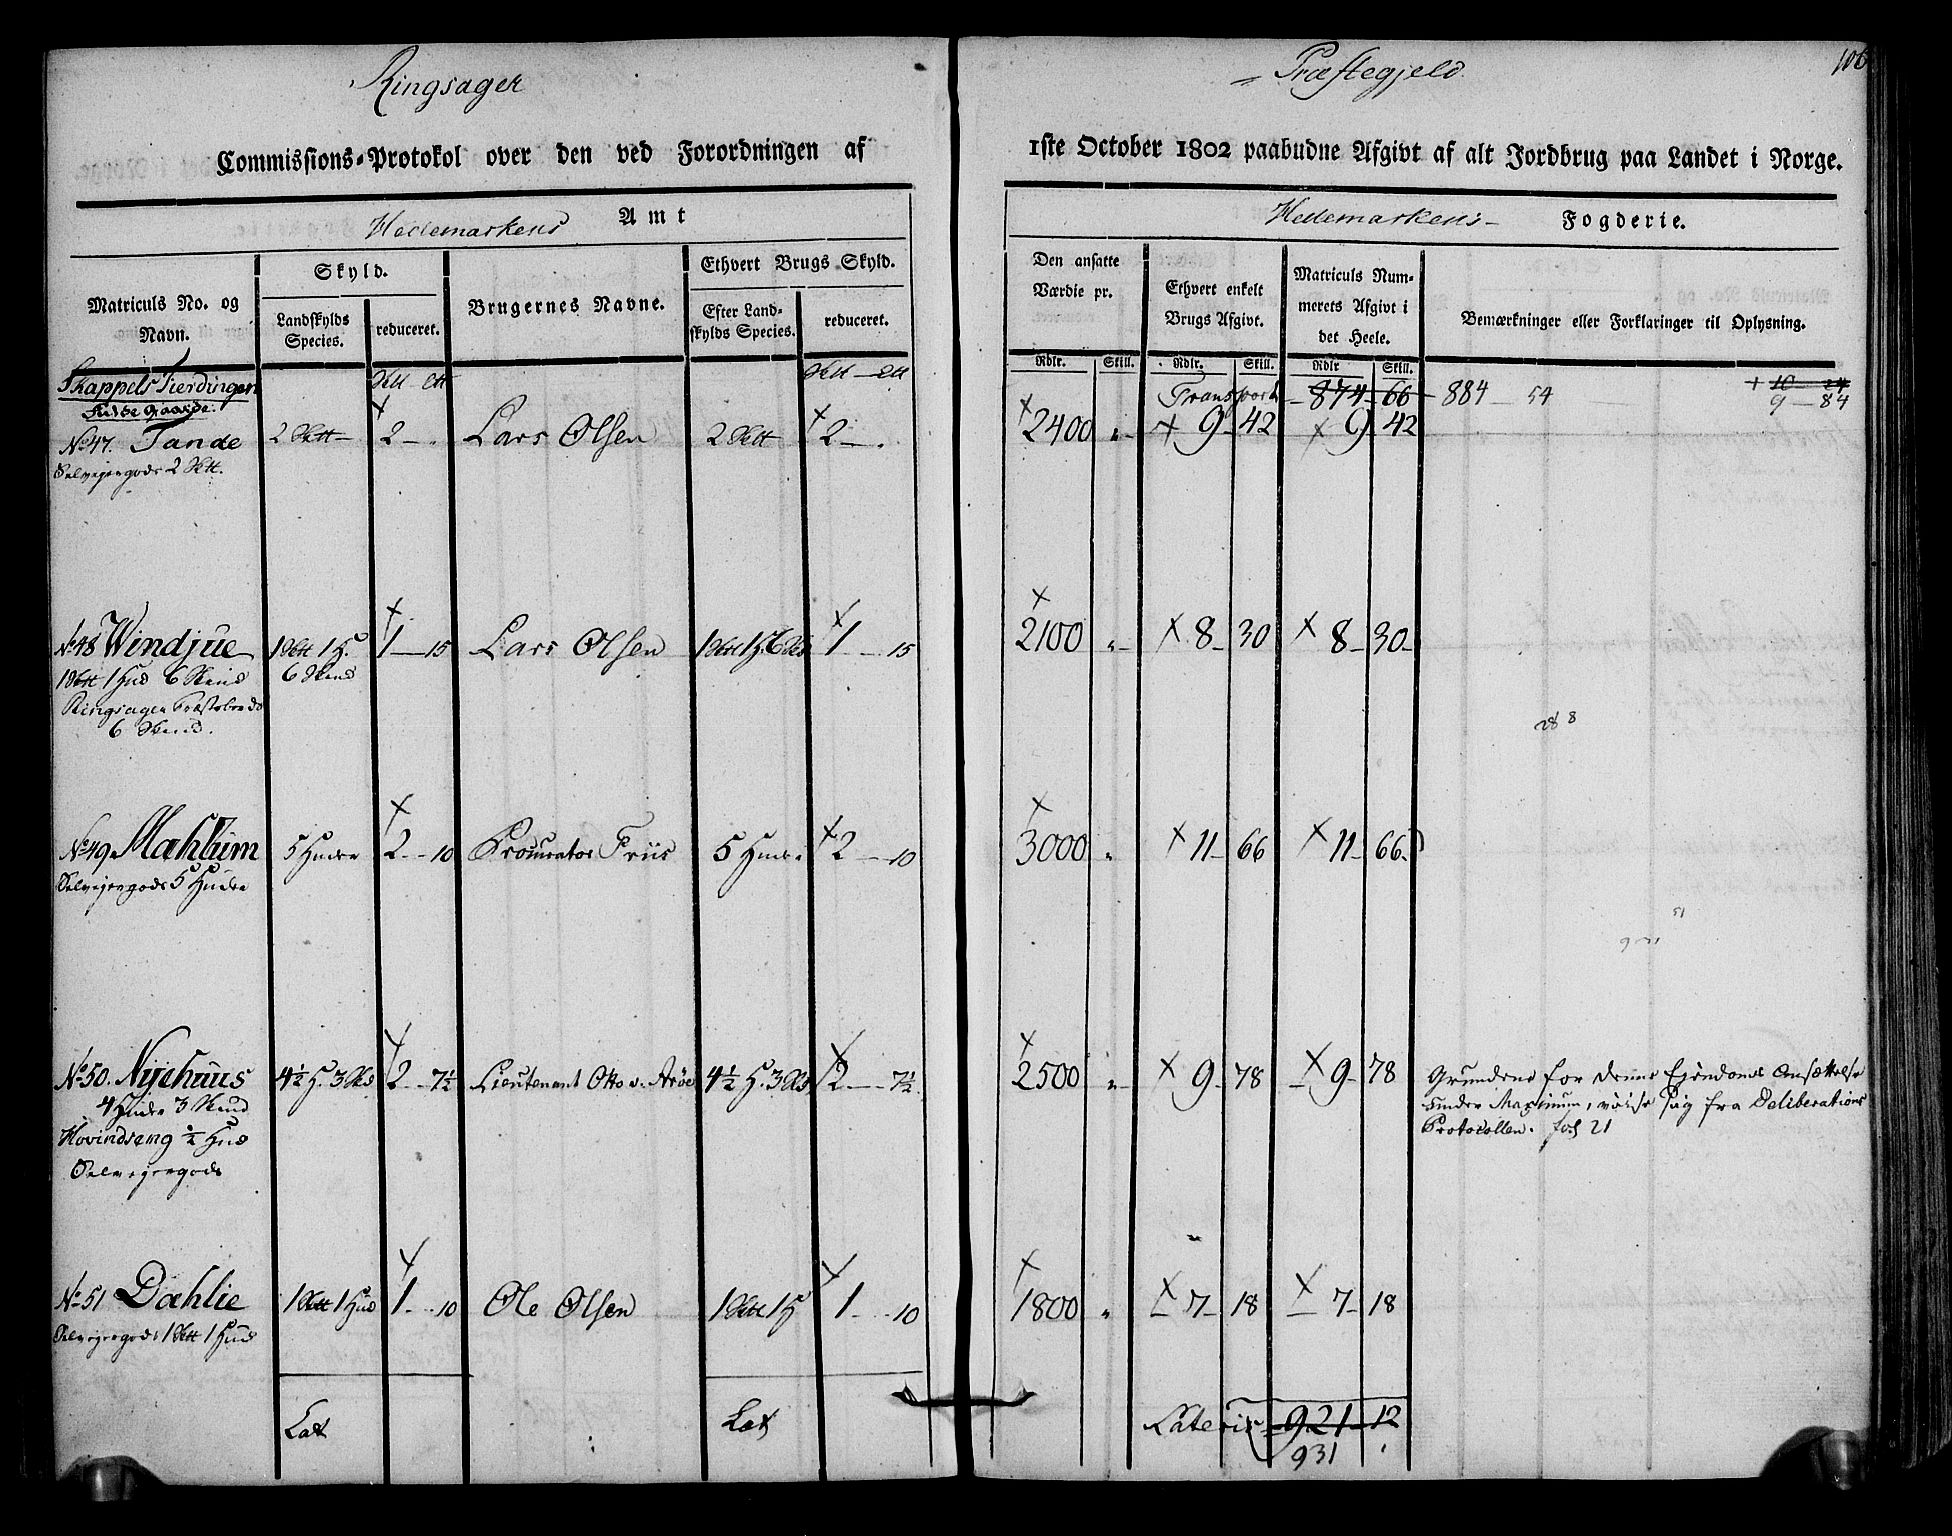 Ringsager
Præstegjeld.
106
Commissions-Protokol over den ved Forordningen af
1ste October 1802 paabudne Afgivt af alt Jordbrug paa Landet i Norge.
Hedemarkens Amt
Hedemarkens Fogderie.
Matriculs No. og Navn.
Skyld.
Landskylds Species.
reduceret.
Brugernes Navne.
Ethvert Brugs Skyld.
Efter Landskylds Species.
reduceret.
Den ansatte Værdie pr.
Rdlr. Skill.
Ethvert enkelt Brugs Afgivt.
Rdlr. Skill.
Matriculs Nummerets Afgivt i det Heele.
Rdlr Skill.
Bemærkninger eller Forklaringer til Oplysning.
Skappels Fierdingen
Fulde Gaarde.
Transport 874 66 884 54
+ 10 24
9 84
No 47. Tande 2 Sktt 2 Lars Olsen 2 Sktt 2 2400 9 42 9 42
Selveyergods 2 Sktt.
No 48 Windjue 1 Sktt 1 H. 1 15 Lars Olsen 1 Sktt 1 H 6 Sk 1 15 2100 8 30 8 30
1 Sktt 1 Hud 6 Skind 6 Skind
Ringsager Præstebord
6 Skind.
28 8
No 49 Mæhlum 5 Huder 2 10 Procurator Friis 5 Huder 2 10 3000 11 66 11 66
Selveyergods 5 Huder
51
No 50. Nyehuus 4½ H. 3 Sk 2 7½ Lieutenant Otto v. Arøe 4½ H. 3 Sk 2 7½ 2500 9 78 9 78
4 Huder 3 Skind
Hovindseng ½ Hud
Selveyergods
Grundene for denne Ejendoms Ansættelse
under Maximum, viiser sig fra Deliberations
Protocollen. fol 21
No 51 Dæhlie 1 Sktt 1 Hud 1 10 Ole Olsen 1 Sktt 1 H 1 10 1800 7 18 7 18
Selveyergods 1 Sktt 1 Hud
Lat Lat Lateris 921 12
931